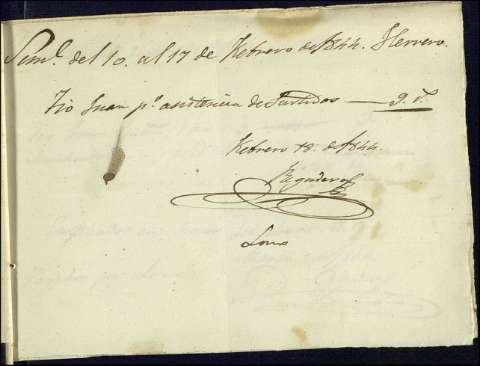 Sem.ª del 10. al 17 de Febrero de 1844. Herrero.
Tio Juan p.r asistencia de Surtidos — 9. r.s
Febrero 18. de 1844.